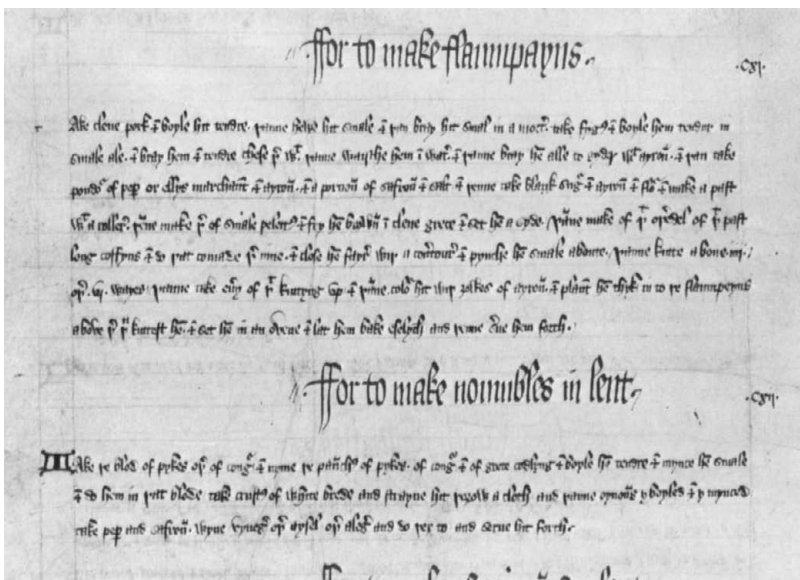 ffor to make flaumpayns.
.Cxi.
Ake clene pork & boyle hit tendre. þanne hewe hit smale & þan bray hit smal in a mort'. take fygs & boyle hem tendur in
smale ale. & bray hem & tendre chese þ' wt. þanne waisshe hem ī wat'. & þanne bray hē alle to gedr wt ayron̄. & þan take
poudr of pep or ellys marchant & ayron̄. & a porcion of safron̄ & salt & þenne take blank sug' & ayron̄ & flor & make a past
wt a roller. þāne make þ' of smale pelets & fry hē broun ī clene grece & set hē a syde. þāne make of þt oþ' del of þt past
long coffyns & do þat comade þ' inne. & close hē fayr' wiþ a cou'tour' & pynche hē smale aboute. þanne kutte a boue .iiij.
oþ' .vj. wayes. þanne take eu'y of þt kuttyng up & þāne. colo' hit wiþ ȝolkes of ayron̄. & plant hē thyk in to þe flaumpeyns
aboue þ' þu kuttest hē. & set hē in an ouene & lat hem bake eselych and þenne s'ue hem forth.
ffor to make nomubles in lent
.Cxij.
Ake þe blod of pykes oþ' of cong' & nyme þe paunchs of pykes. of cong' & of grete codlyng & boyle hē tendre & mynce hē smale
& do hem in þat blode take crusts of white brede and strayne hit þrough a cloth and þanne oynons y boyled & y mynced
take pep and safron̄. wyne vyneg' oþ' aysel oþ' aleg' and do þer to and serue hit forth.